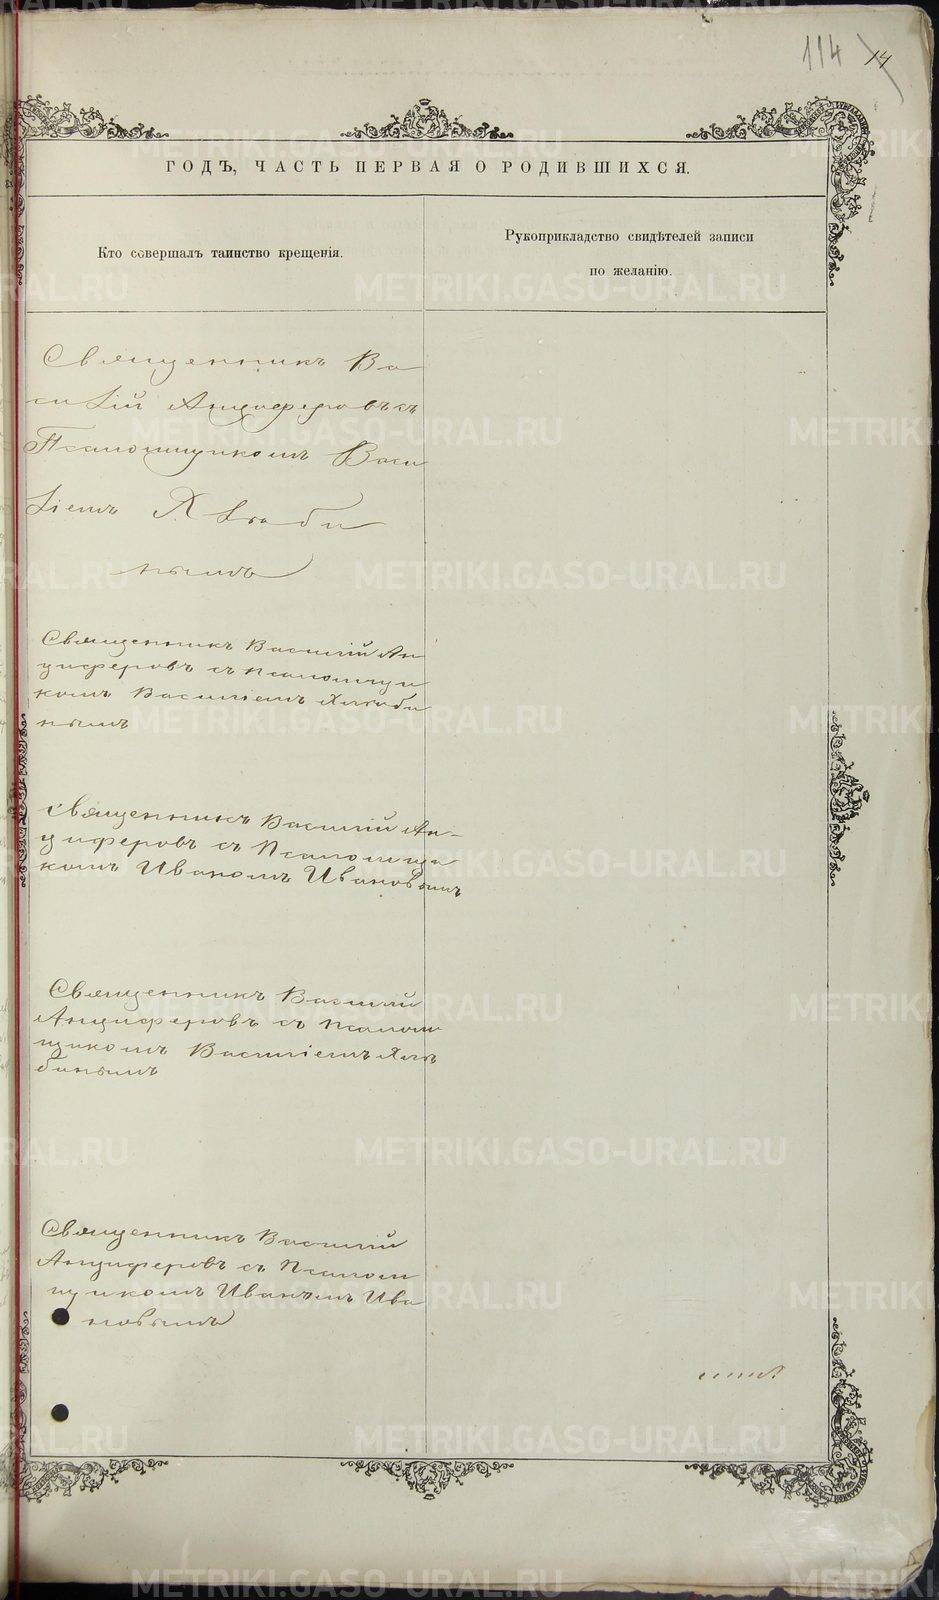 114 14
ГОДЪ, ЧАСТЬ ПЕРВАЯ О РОДИВШИХСЯ.
Кто совершалъ таинство крещенія.
Рукоприкладство свидѣтелей записи
по желанію.
Священникъ Ва
силій Анциферовъ съ
Псаломщикомъ Васи
ліемъ Хлѣби
нымъ
Священникъ Василій Ан
циферовъ съ псаломщи
комъ Василіемъ Хлѣби
нымъ
Священникъ Василій Ан-
циферовъ съ Псаломщи
комъ Иваномъ Ивановымъ
Священникъ Василій
Анциферовъ съ псалом
щикомъ Василіемъ Хлѣ
бинымъ
Священникъ Василій
Анциферовъ съ Псалом
щикомъ Иваномъ Ива
новымъ
METRIKI.GASO-URAL.RU